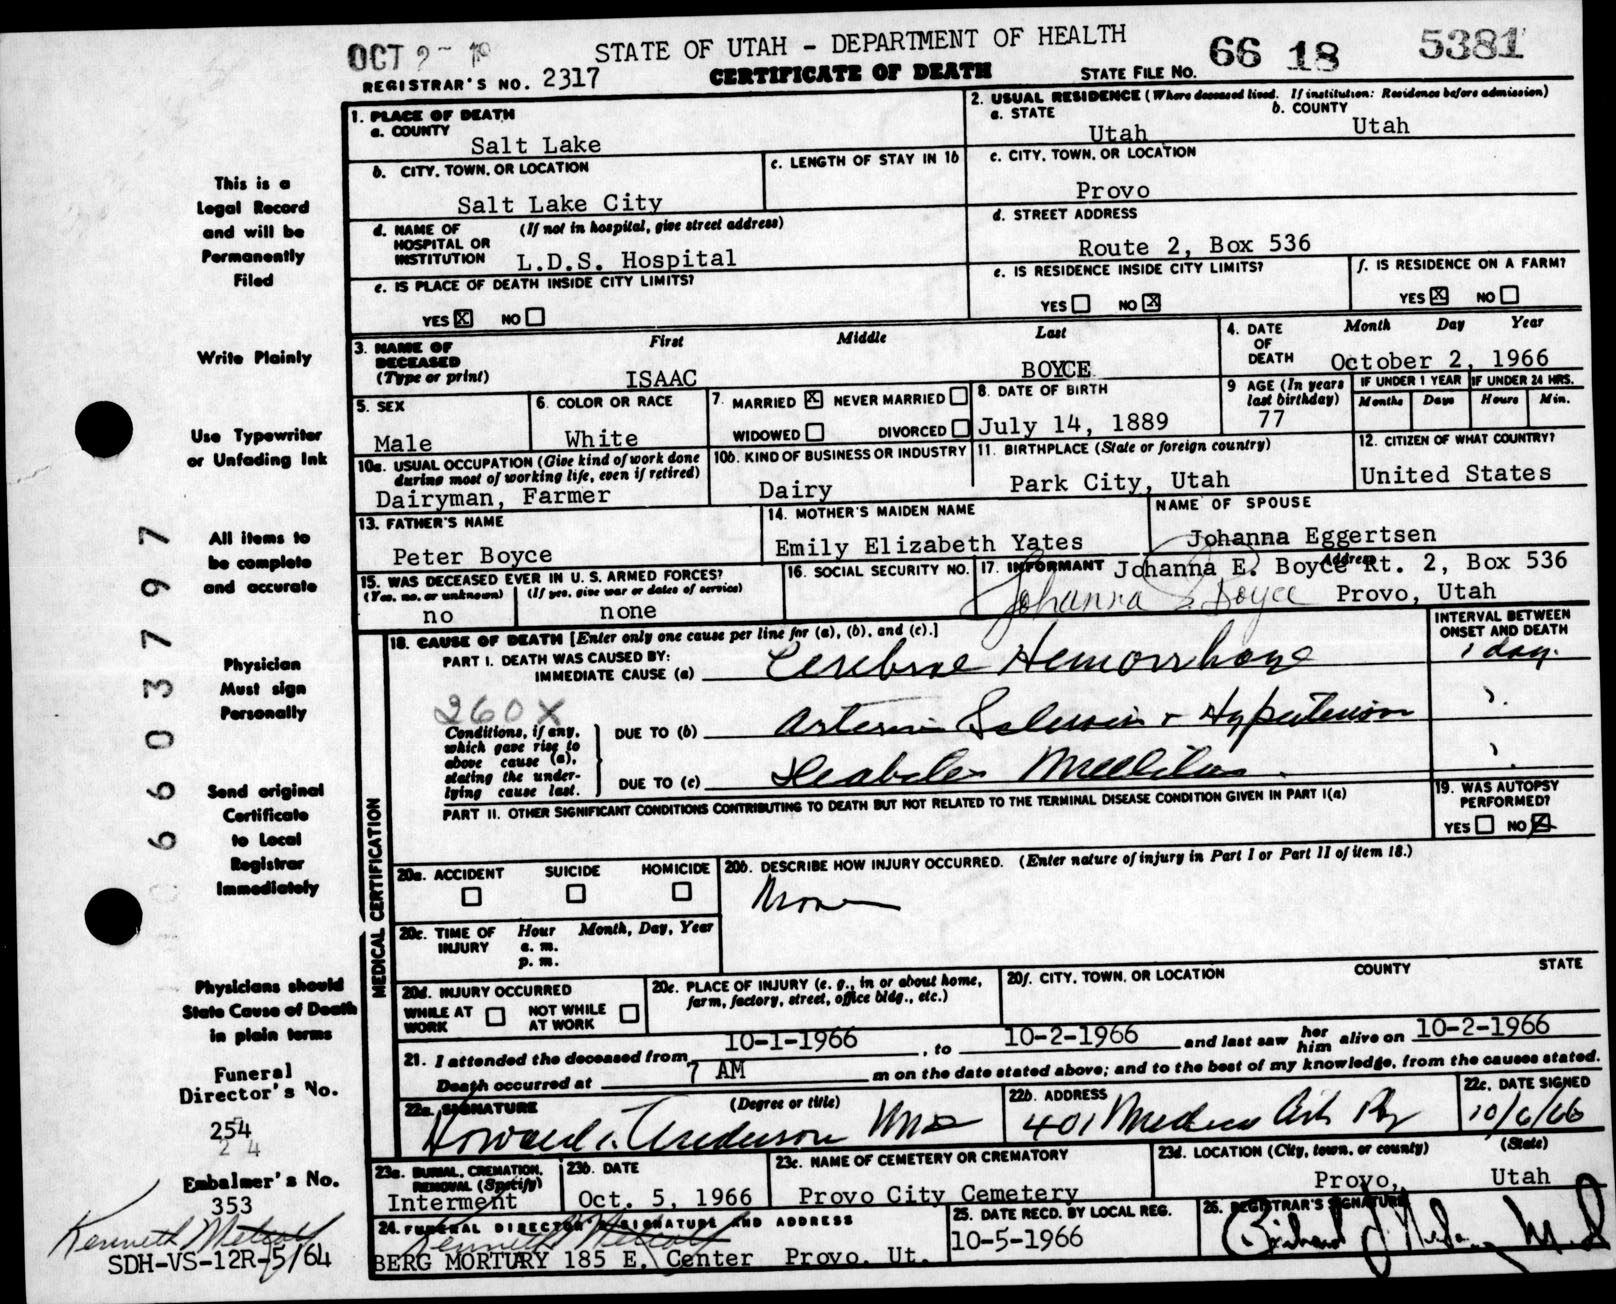 OCT 2-
STATE OF UTAH - DEPARTMENT OF HEALTH
66 18 5381
REGISTRAR'S NO. 2317
CERTIFICATE OF DEATH
STATE FILE NO.
1. PLACE OF DEATH
a. COUNTY
Salt Lake
2. USUAL RESIDENCE (Where deceased lived. If institution: Residence before admission)
a. STATE
Utah
b. COUNTY
Utah
b. CITY, TOWN, OR LOCATION
Salt Lake City
c. LENGTH OF STAY IN 1b
c. CITY, TOWN, OR LOCATION
Provo
d. NAME OF HOSPITAL OR INSTITUTION
(If not in hospital, give street address)
L.D.S. Hospital
d. STREET ADDRESS
Route 2, Box 536
e. IS PLACE OF DEATH INSIDE CITY LIMITS?
YES X NO
e. IS RESIDENCE INSIDE CITY LIMITS?
YES NO X
f. IS RESIDENCE ON A FARM?
YES X NO
3. NAME OF DECEASED
(Type or print)
First Middle Last
ISAAC BOYCE
4. DATE OF DEATH
Month Day Year
October 2, 1966
5. SEX
Male
6. COLOR OR RACE
White
7. MARRIED X NEVER MARRIED
WIDOWED DIVORCED
8. DATE OF BIRTH
July 14, 1889
9 AGE (In years last birthday)
77
IF UNDER 1 YEAR
Months Days
IF UNDER 24 HRS.
Hours Min.
10a. USUAL OCCUPATION (Give kind of work done during most of working life, even if retired)
Dairyman, Farmer
10b. KIND OF BUSINESS OR INDUSTRY
Dairy
11. BIRTHPLACE (State or foreign country)
Park City, Utah
12. CITIZEN OF WHAT COUNTRY?
United States
13. FATHER'S NAME
Peter Boyce
14. MOTHER'S MAIDEN NAME
Emily Elizabeth Yates
NAME OF SPOUSE
Johanna Eggertsen
15. WAS DECEASED EVER IN U. S. ARMED FORCES?
(Yes, no, or unknown)
no
(If yes, give war or dates of service)
none
16. SOCIAL SECURITY NO.
17. INFORMANT
Johanna E. Boyce
Address
Rt. 2, Box 536
Provo, Utah
Johanna E. Boyce
18. CAUSE OF DEATH [Enter only one cause per line for (a), (b), and (c).]
INTERVAL BETWEEN ONSET AND DEATH
PART I. DEATH WAS CAUSED BY:
IMMEDIATE CAUSE (a) Cerebral Hemorrhage
1 day.
260X
Conditions, if any, which gave rise to above cause (a), stating the underlying cause last.
DUE TO (b) Arterio Sclerosis + Hypertension
?.
DUE TO (c) Diabetes Mellitus.
?.
PART II. OTHER SIGNIFICANT CONDITIONS CONTRIBUTING TO DEATH BUT NOT RELATED TO THE TERMINAL DISEASE CONDITION GIVEN IN PART I(a)
19. WAS AUTOPSY PERFORMED?
YES NO X
MEDICAL CERTIFICATION
20a. ACCIDENT SUICIDE HOMICIDE
20b. DESCRIBE HOW INJURY OCCURRED. (Enter nature of injury in Part I or Part II of item 18.)
None
20c. TIME OF INJURY
Hour Month, Day, Year
a. m.
p. m.
20d. INJURY OCCURRED
WHILE AT WORK NOT WHILE AT WORK
20e. PLACE OF INJURY (e. g., in or about home, farm, factory, street, office bldg., etc.)
20f. CITY, TOWN, OR LOCATION COUNTY STATE
21. I attended the deceased from 10-1-1966, to 10-2-1966 and last saw her him alive on 10-2-1966
Death occurred at 7 AM m on the date stated above; and to the best of my knowledge, from the causes stated.
22a. SIGNATURE (Degree or title)
Howard Anderson MD
22b. ADDRESS
401 Medical Arts
22c. DATE SIGNED
10/6/66
23a. BURIAL, CREMATION, REMOVAL (Specify)
Interment
23b. DATE
Oct. 5, 1966
23c. NAME OF CEMETERY OR CREMATORY
Provo City Cemetery
23d. LOCATION (City, town, or county) (State)
Provo, Utah
24. FUNERAL DIRECTOR'S SIGNATURE AND ADDRESS
Kenneth Metcalf
BERG MORTURY 185 E. Center Provo. Ut.
25. DATE RECD. BY LOCAL REG.
10-5-1966
26. REGISTRAR'S SIGNATURE
This is a
Legal Record
and will be
Permanently
Filed
Write Plainly
Use Typewriter
or Unfading Ink
All items to
be complete
and accurate
Physician
Must sign
Personally
Send original
Certificate
to Local
Registrar
Immediately
Physicians should
State Cause of Death
in plain terms
Funeral
Director's No.
254
24
Embalmer's No.
353
Kenneth Metcalf
SDH-VS-12R-5/64
6603797